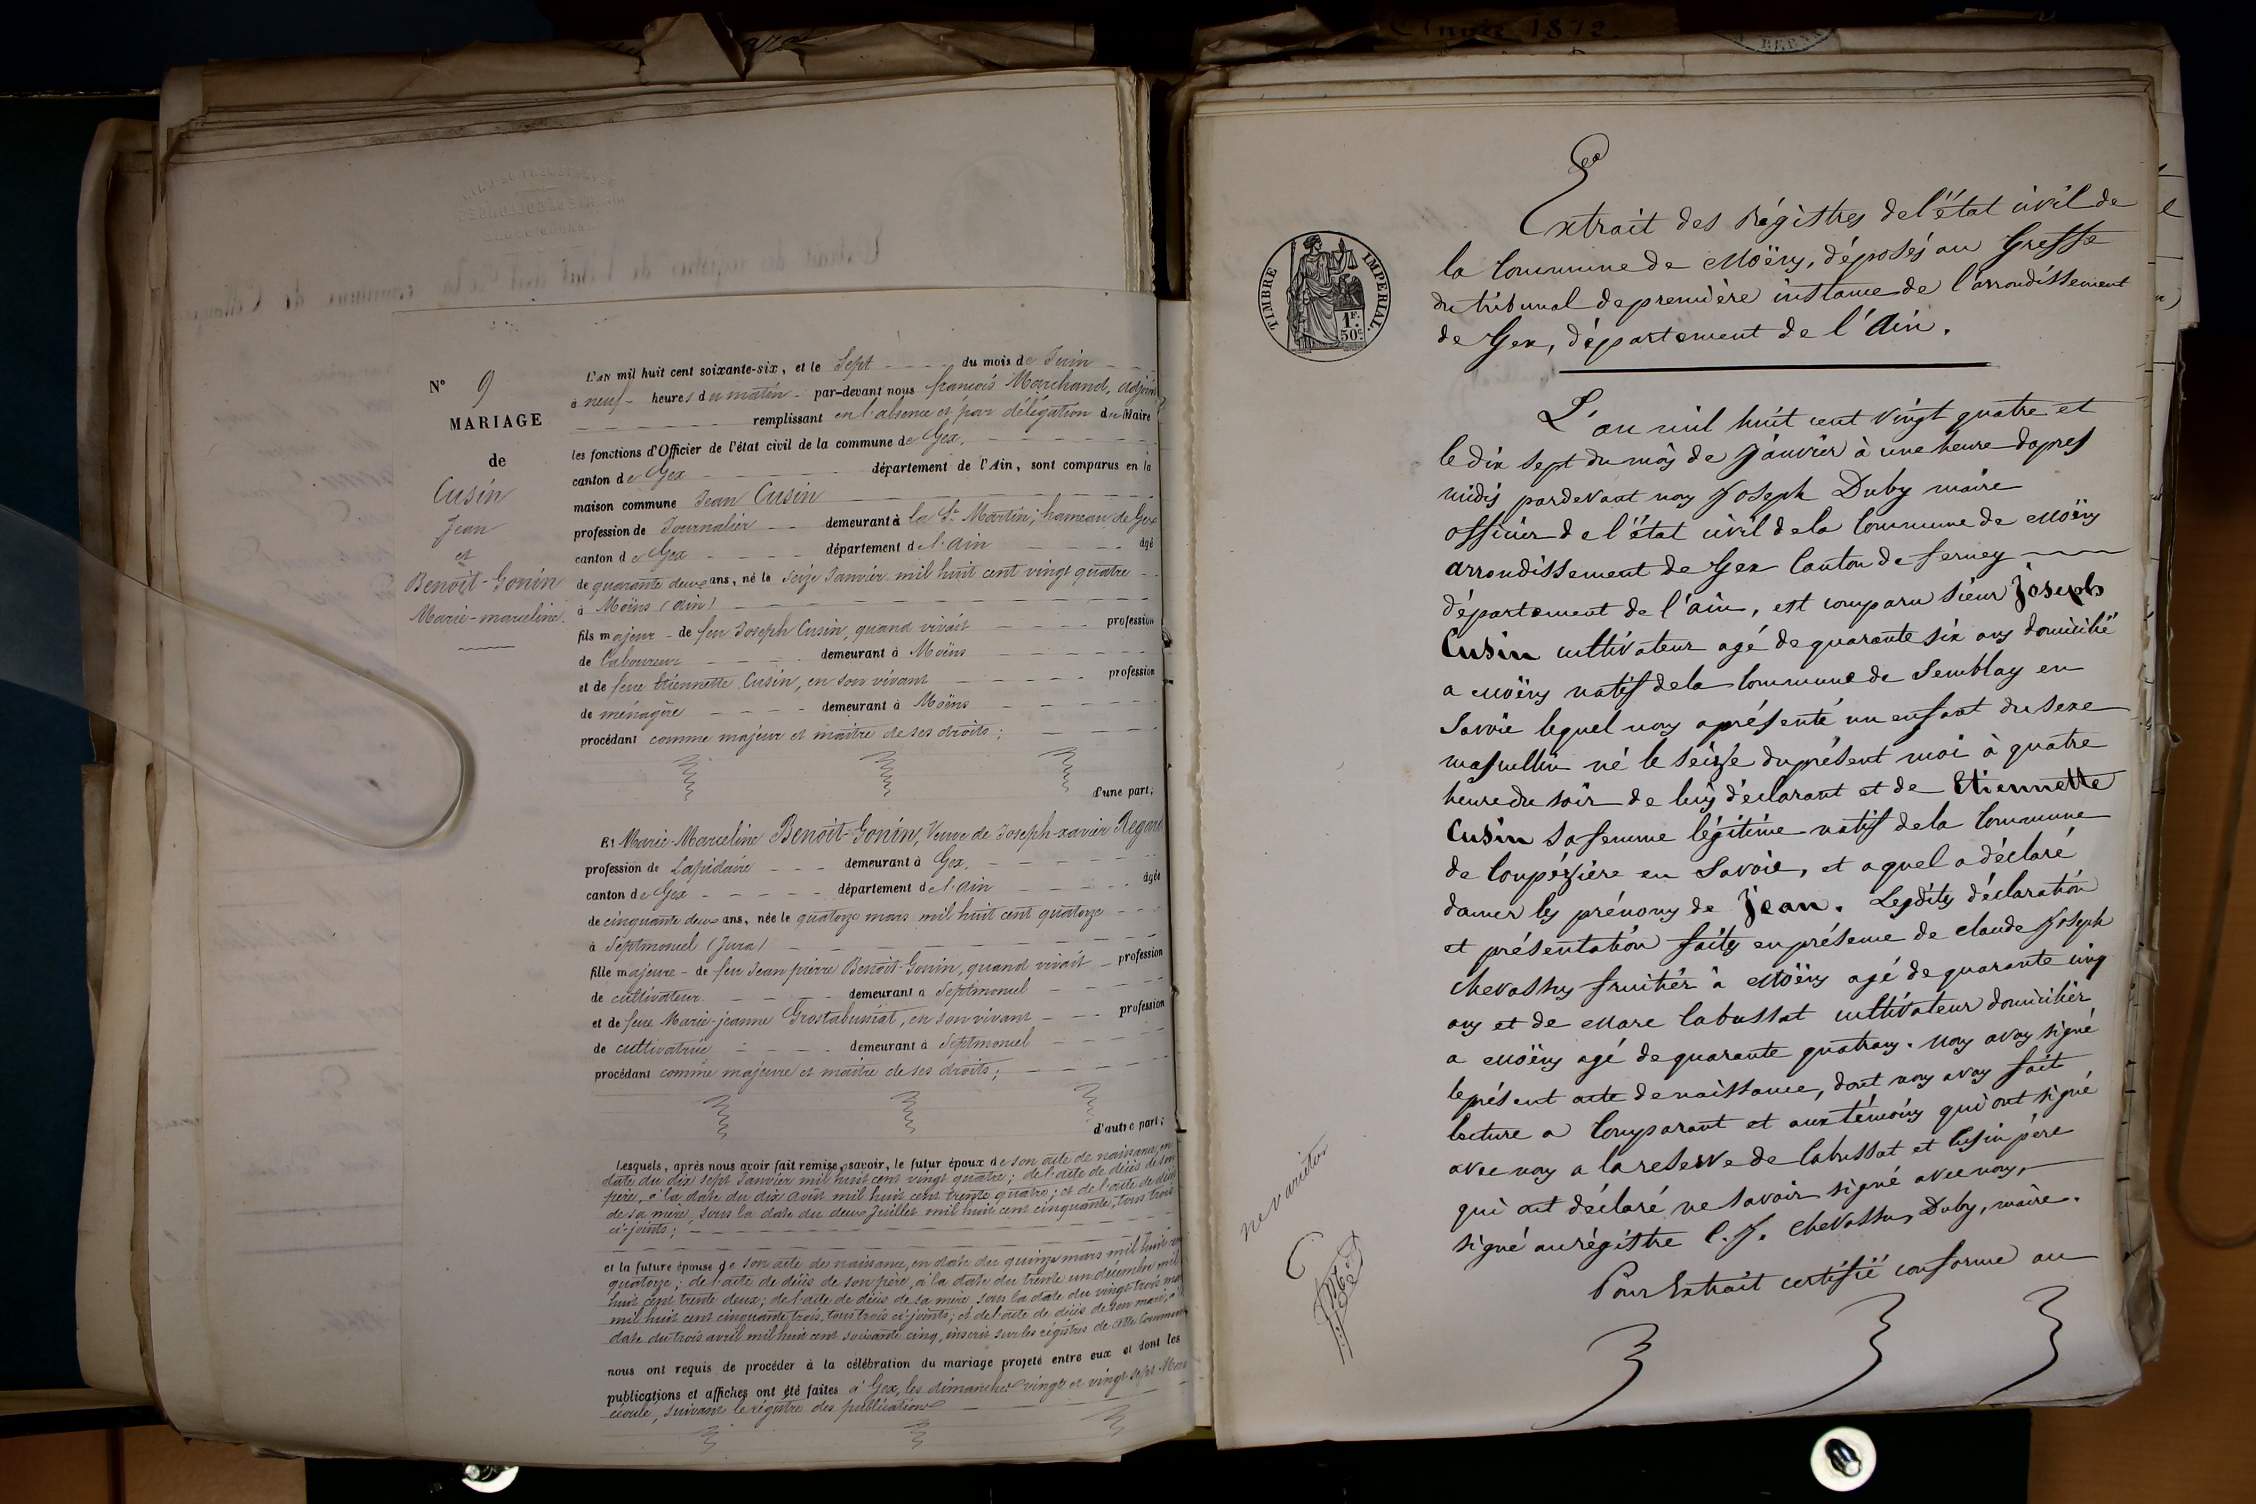 Année 1872.
N° 9
MARIAGE
de
Cusin
Jean
et
Benoit-Gonin
Marie-marceline.
L'an mil huit cent soixante-six, et le Sept du mois de Juin
à neuf heures du matin par-devant nous françois Marchand, adjoint
remplissant en l'absence et par délégation du Maire
les fonctions d'Officier de l'état civil de la commune de Gex,
canton de Gex département de l'Ain, sont comparus en la
maison commune Jean Cusin
profession de Journalier demeurant à la St Martin, hameau de Gex
canton de Gex département de l'Ain âgé
de quarante deux ans, né le seize Janvier mil huit cent vingt quatre
à Moëns (Ain)
fils majeur de feu Joseph Cusin, quand vivait profession
de Laboureur demeurant à Moëns
et de feue Etiennette Cusin, en son vivant profession
de ménagère demeurant à Moëns
procédant comme majeur et maître de ses droits;
d'une part;
Et Marie-Marceline Benoit-Gonin, Veuve de Joseph-xavier Regard
profession de Lapidaire demeurant à Gex,
canton de Gex département de l'Ain âgée
de cinquante deux ans, née le quatorze mars mil huit cent quatorze
à Septmoncel (Jura)
fille majeure de feu Jean pierre Benoit-Gonin, quand vivait profession
de cultivateur demeurant à Septmoncel
et de feue Marie-jeanne Grostabussiat, en son vivant profession
de cultivatrice demeurant à Septmoncel
procédant comme majeure et maître de ses droits;
d'autre part;
Lesquels, après nous avoir fait remise, savoir, le futur époux de son acte de naissance, en
date du dix sept Janvier mil huit cent vingt quatre; de l'acte de décès de son
père, à la date du dix août mil huit cent trente quatre; et de l'acte de décès
de sa mère, sous la date du deux Juillet mil huit cent cinquante, tous trois
ci-joints;
et la future épouse de son acte de naissance, en date du quinze mars mil huit cent
quatorze; de l'acte de décès de son père, à la date du trente un décembre mil
huit cent trente deux; de l'acte de décès de sa mère sous la date du vingt trois mai
mil huit cent cinquante trois, tous trois ci-joints; et de l'acte de décès de son mari, à
date du trois avril mil huit cent soixante cinq, inscrit sur les régistres de cette Commune
nous ont requis de procéder à la célébration du mariage projeté entre eux et dont les
publications et affiches ont été faites à Gex, les dimanches vingt et vingt sept Mai
écoulé, suivant le régistre des publications
TIMBRE IMPERIAL.
1F.
50c.
Extrait des Régistres de l'état civil de
la Commune de Moëns, déposés au Greffe
du tribunal de première instance de l'arrondissement
de Gex, département de l'Ain.
L'an mil huit cent vingt quatre et
le dix sept du mois de Janvier à une heure dapres
midis pardevant nous Joseph Duby maire
officier de l'état civil de la Commune de Moëns
arrondissement de Gex Canton de ferney
département de l'ain, est comparu sieur Joseph
Cusin cultivateur agé de quarante six ans domicilié
a Moëns natif de la Commune de Semblay en
Savoie lequel nous a présenté un enfant du sexe
masculin né le séize du présent moi à quatre
heure du soir de luy déclarant et de Etiennette
Cusin sa femme légitime natif de la Commune
de Loupézière en Savoie, et aquel a déclaré
donner les prénoms de Jean. Lesdites déclaration
et présentation faites en présence de claude Joseph
Chevassus fruitier à Moëns agé de quarante cinq
ans et de Marc Labussat cultivateur domicilier
a Moëns agé de quarante quatrans. Nous avons signé
le présent acte de naissance, dont nous avons fait
lecture a Comparant et aux témoins qui ont signé
avec nous a la reserve de Labussat et Cusin père
qui ont déclaré ne savoir signé avec nous,
signé au régistre C. J. Chevassus, Duby, maire.
Pour Extrait certifié conforme au
ne varietur